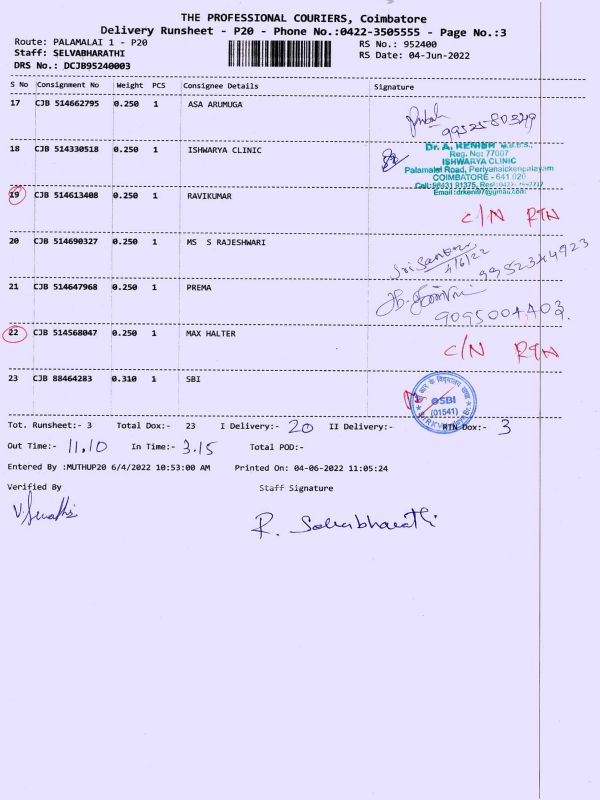 THE PROFESSIONAL COURIERS, Coimbatore
Delivery Runsheet - P20 - Phone No.:0422-3505555 - Page No.:3
Route: PALAMALAI 1 - P20
RS No.: 952400
Staff: SELVABHARATHI
RS Date: 04-Jun-2022
DRS No.: DCJB95240003
S No Consignment No Weight PCS Consignee Details Signature
17 CJB 514662795 0.250 1 ASA ARUMUGA
18 CJB 514330518 0.250 1 ISHWARYA CLINIC
Dr. A. KENISH M.B.B.S.,
Reg. No: 77007
ISHWARYA CLINIC
Palamalai Road, Periyanaickenpalayam
COIMBATORE - 641 020
Email:drkeni97@gmail.com
19 CJB 514613408 0.250 1 RAVIKUMAR
C/N RTN
20 CJB 514690327 0.250 1 MS S RAJESHWARI
4/6/22 9952344923
21 CJB 514647968 0.250 1 PREMA
9095004403
22 CJB 514568047 0.250 1 MAX HALTER
C/N RTN
23 CJB 88464283 0.310 1 SBI
SBI
(01541)
Tot. Runsheet:- 3 Total Dox:- 23 I Delivery:- 20 II Delivery:- RTN Dox:- 3
Out Time:- 11.10 In Time:- 3.15 Total POD:-
Entered By :MUTHUP20 6/4/2022 10:53:00 AM Printed On: 04-06-2022 11:05:24
Verified By Staff Signature
R. Selvabharathi